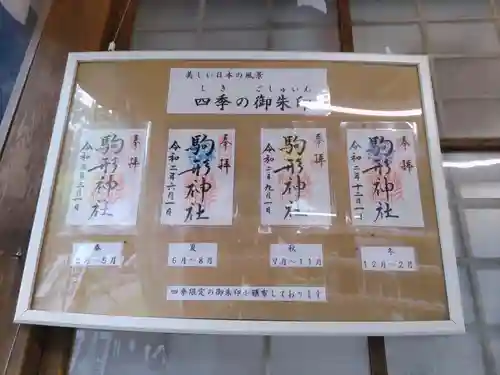 美しい日本の風景
しき ごしゅいん
四季の御朱印
奉拝
駒形神社
令和二年三月一日
奉拝
駒形神社
令和二年六月一日
奉拝
駒形神社
令和二年九月一日
奉拝
駒形神社
令和二年十二月一日
春
3月～5月
夏
6月～8月
秋
9月～11月
冬
12月～2月
四季限定の御朱印も頒布しております